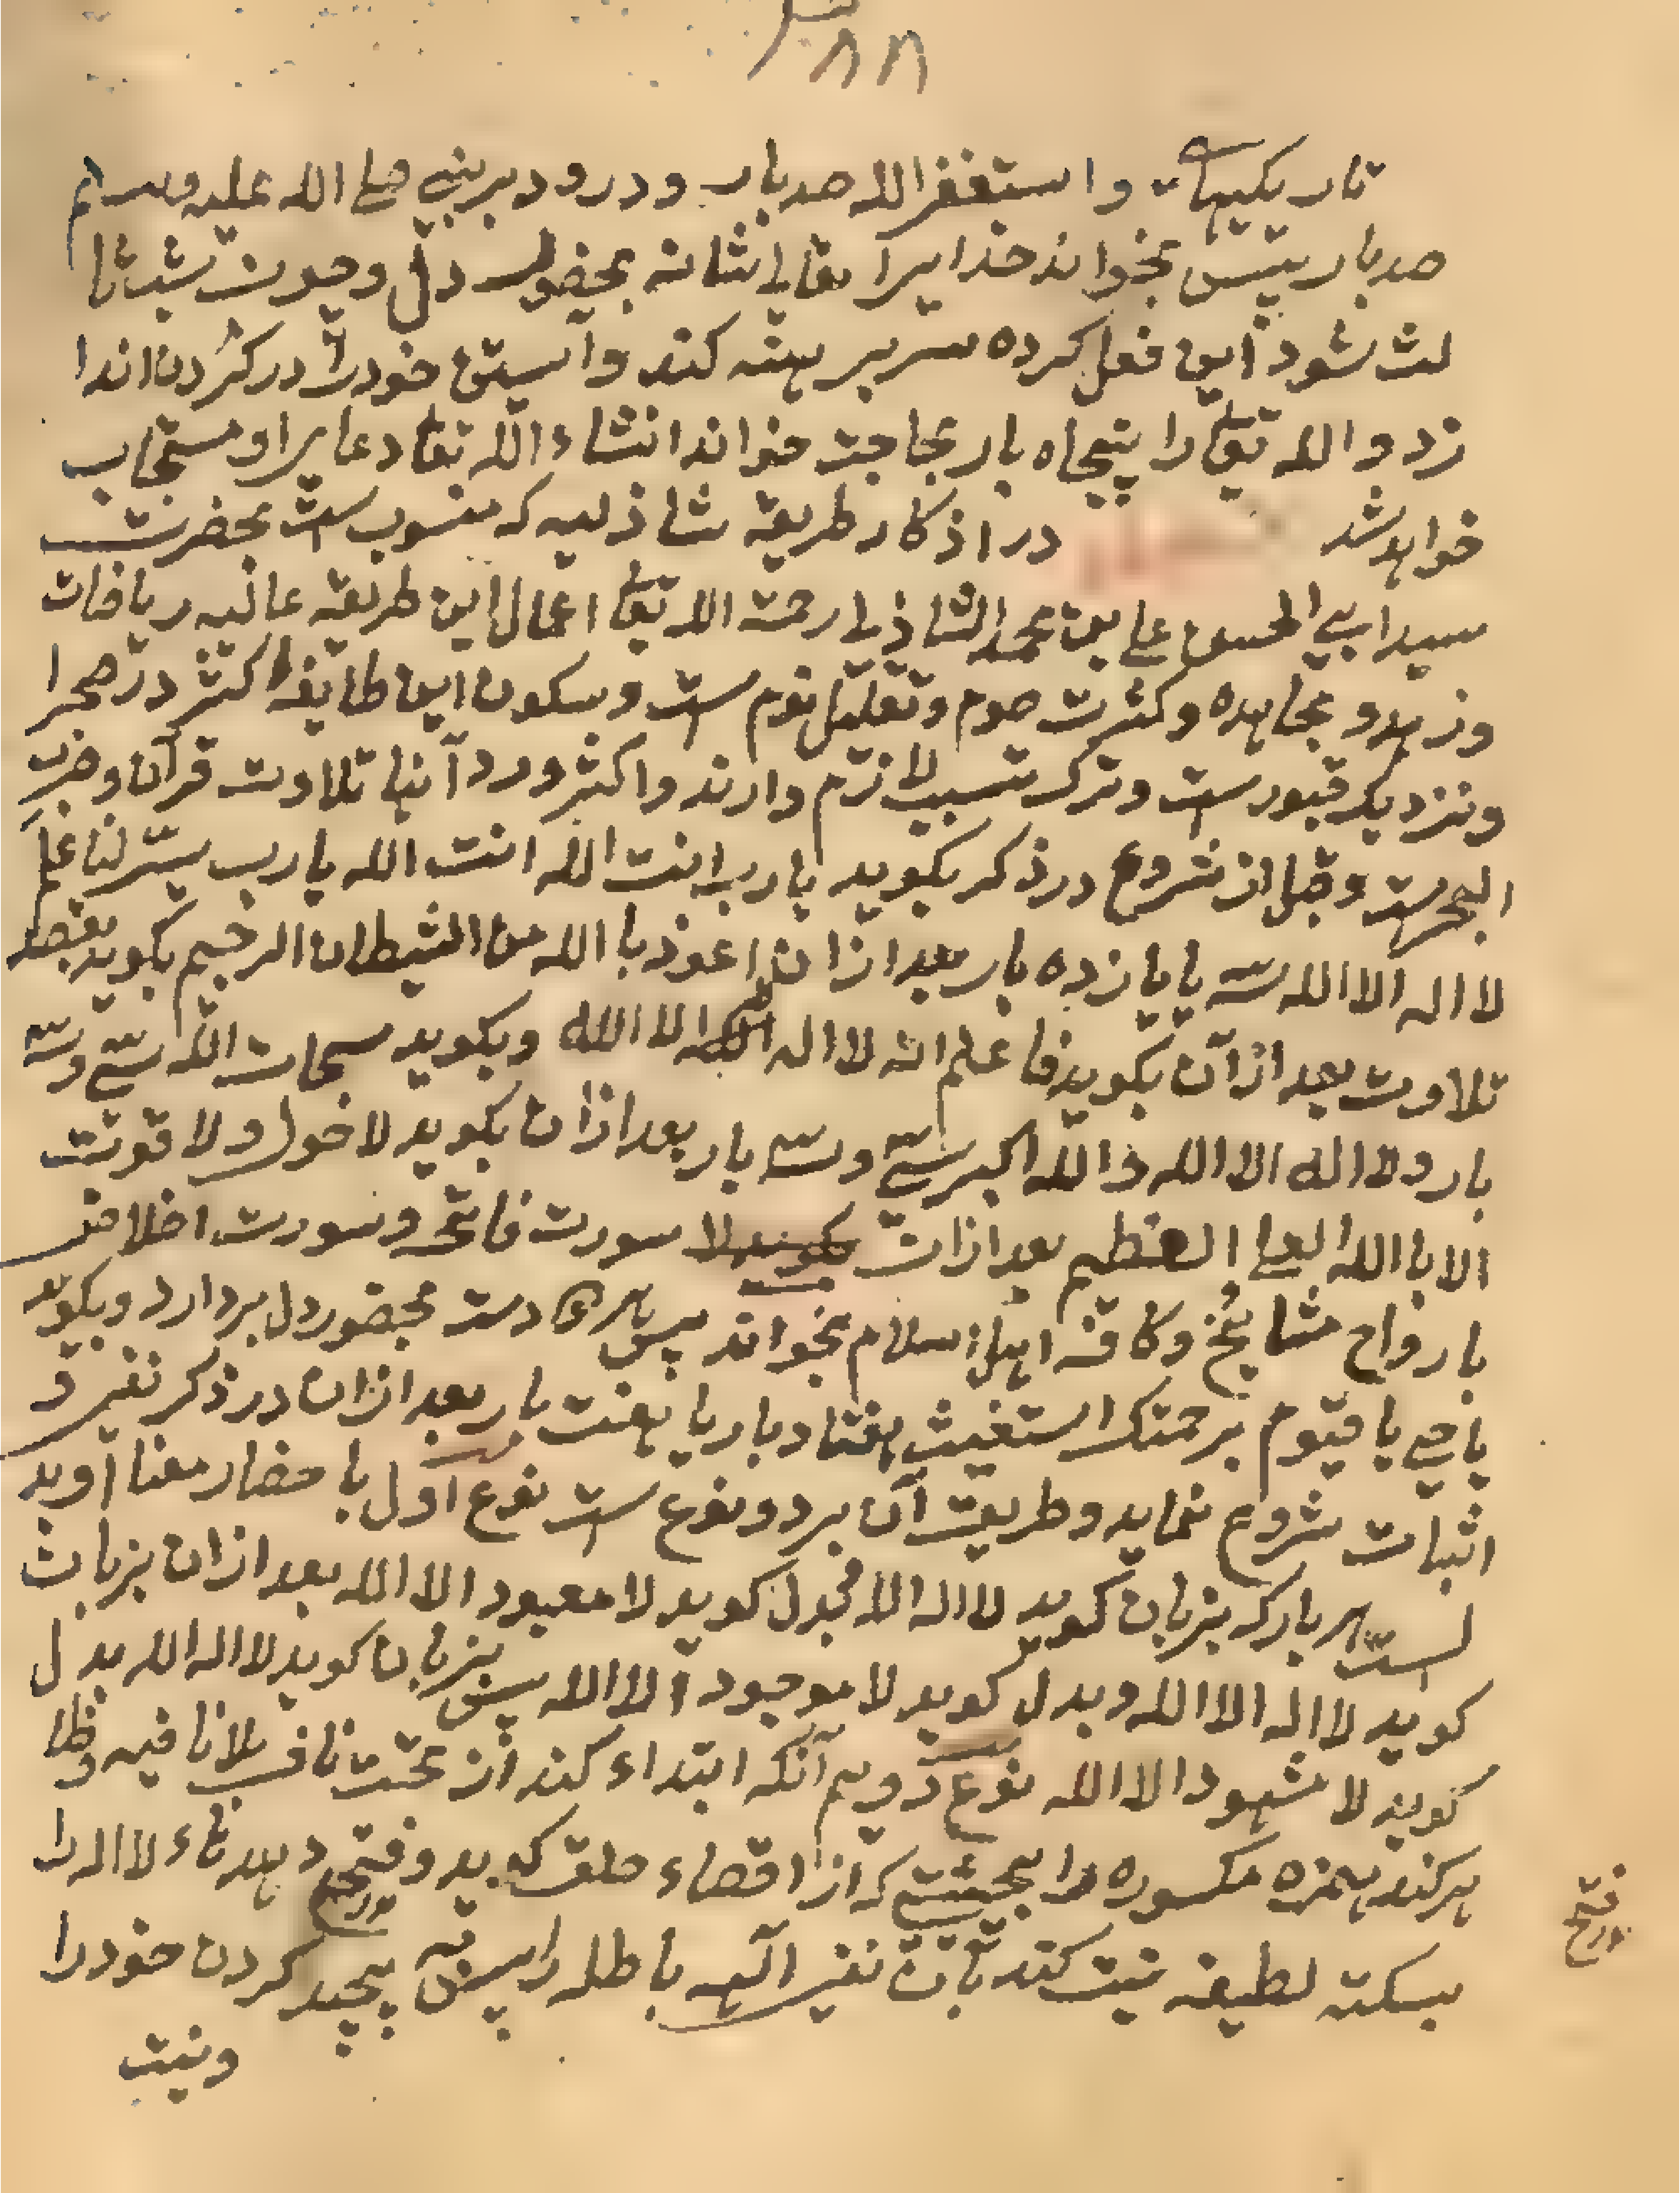 ۸۸
تاریکیها و استغفر الله صد بار و درود بر نبی صلی الله علیه وسلم
صد بار پس بخواند خدایرا تعالی شانه بحضور دل و چون شب ثا
لث شود این فعل کرده سر برهنه کند و آستین خود را در گردن اندا
زد و الله تعالی را پنجاه بار بحاجت خواند انشاء الله تعا دعایر او مستجاب
خواهد شد در اذکار طریقه شاذلیه که منسوب ست بحضرت
سید ابی الحسن علی بن محمد الشاذلی رحمة الله تعالی اعمال این طریقه عالیه ریاضات
و زهد و مجاهده و کثرت صوم و تقلیل نوم ست و سکون این طایفه اکثر در صحرا
و نزدیک قبور ست و ترک تسبب لازم دارند و اکثر ورد آنها تلاوت قرآن و حزب
البحر ست و قبل از شروع در ذکر بکوید یا رب انت الله انت الله یا رب یسر لنا علم
لا اله الا الله سه یا پانزده بار بعد ازان اعوذ با الله من الشیطان الرجیم بکوید بقصد
تلاوت بعد ازآن بکوید فاعلم انه لا اله الا الله و بکوید سبحان الله سی و سه
بار ولا اله الا الله و الله اکبر سی و سه بار بعد ازان بکوید لا حول و لا قوت
الا با الله العلی العظیم بعد ازان سورت فاتحه و سورت اخلاص
بارواح مشایخ و کافه اهل اسلام بخواند پس هر دو دست بحضور دل بردارد و بکوید
یا حی یا قیوم برحمتک استغیث هفتاد بار یا هفت بار بعد ازان در ذکر نفی و
اثبات شروع نماید و طریقت آن بر دو نوع ست نوع اول با حضار معنا آوید
ست هر بار که بزبان کوید لا اله الا بدل کوید لا معبود الا الله بعد ازان بزبان
کوید لا اله الا الله و بدل کوید لا موجود الا الله پس بزبان کوید لا اله الله بدل
کوید لا مشهود الا الله نوع دویم آنکه ابتداء کند از تحت ناف بلانافیه و ظا
هر کند همزه مکسوره را بحیثیتی که از اقصاء حلق که بد و فتحه دهد تاء لا اله را
بسکته لطیفه نیت کند بآن نفی الهه باطله را پس پیچید کردن خود را
و نیت
فتح